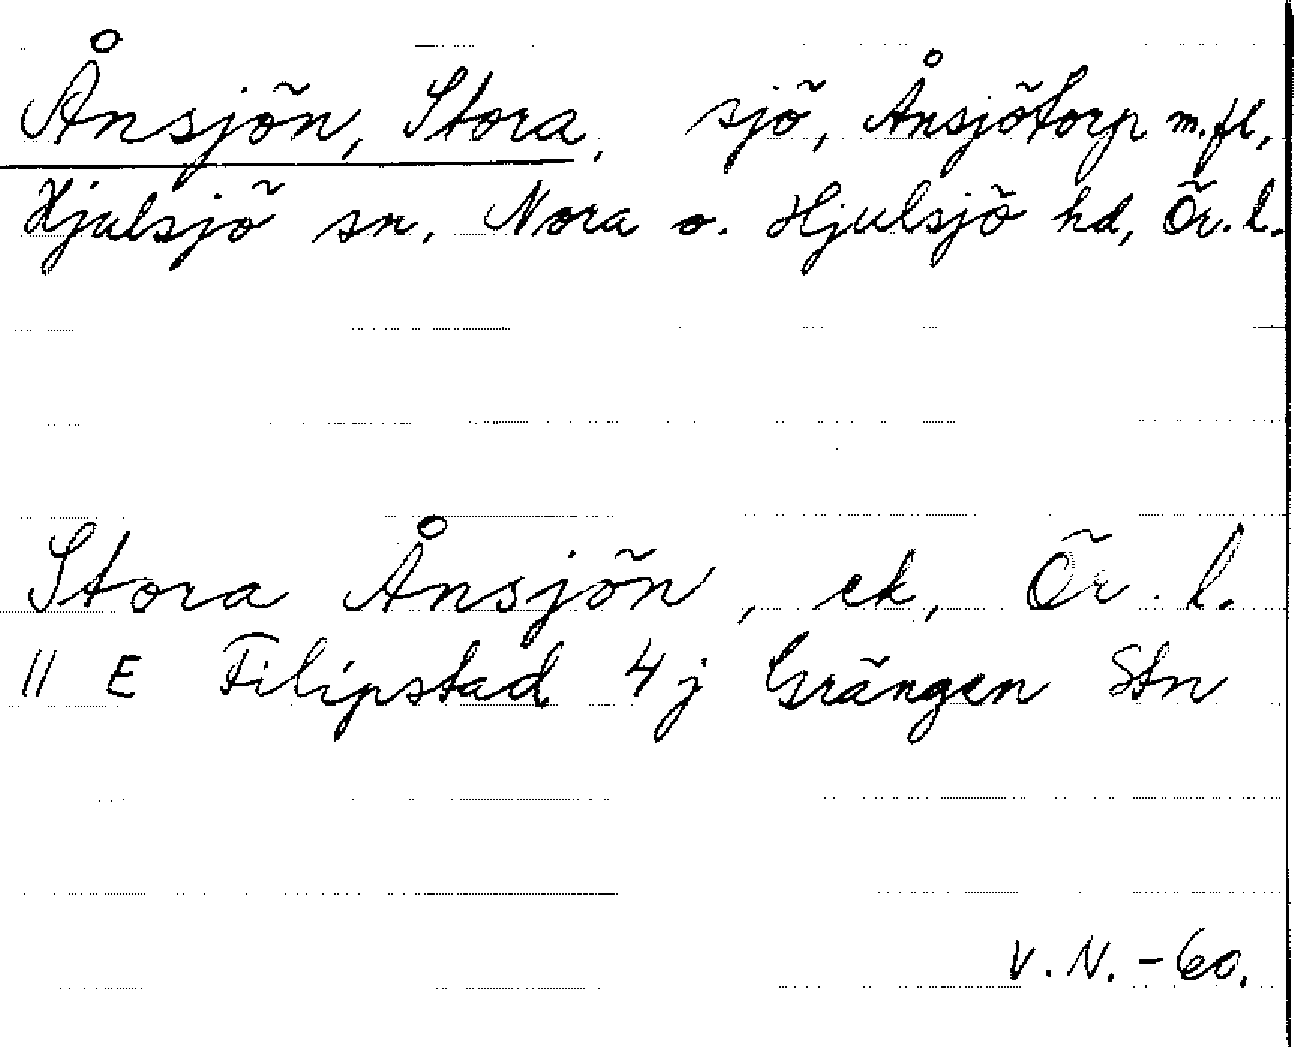 Ånsjön, Stora, sjö, Ånsjötorp m.fl,
Hjulsjö sn. Nora o. Hjulsjö hd, Ör. l.
Stora Ånsjön, ek, Ör. l.
11 E Filipstad 4 j Grängen Stn
V. N. - 60.